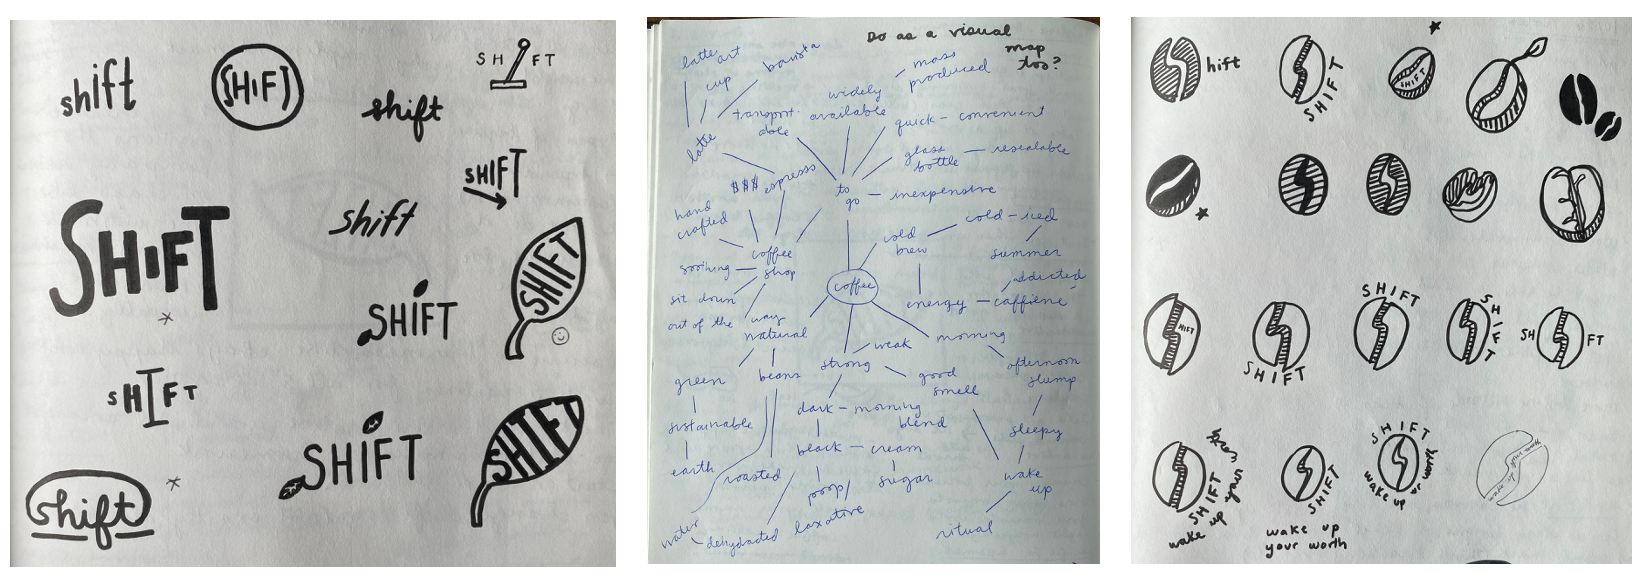 shift
SHIFT
SH FT
shift
SHIFT
SHIFT
shift
SHIFT
SHIFT
SHIFT
SHIFT
SHIFT
shift
Do as a visual
map
too?
latte art
cup
barista
mass
produced
widely
available
transport
able
quick - convenient
latte
glass
bottle - resealable
$$$ espresso
to
go - inexpensive
hand
crafted
cold - iced
cold
brew
coffee
shop
summer
soothing
addicted
sit down
coffee
energy - caffiene
out of the way
natural
weak
morning
strong
afternoon
slump
green
beans
good
smell
dark - morning
blend
sustainable
sleepy
black - cream
earth
roasted
sugar
wake
up
poop/
laxative
water
dehydrated
ritual
hift
SHIFT
SHIFT
HIFT
SHIFT
SHIFT
SHIFT
SH FT
SHIFT
wake up your
SHIFT
wake up
your worth
SHIFT
wake up
ur worth
wake up your worth